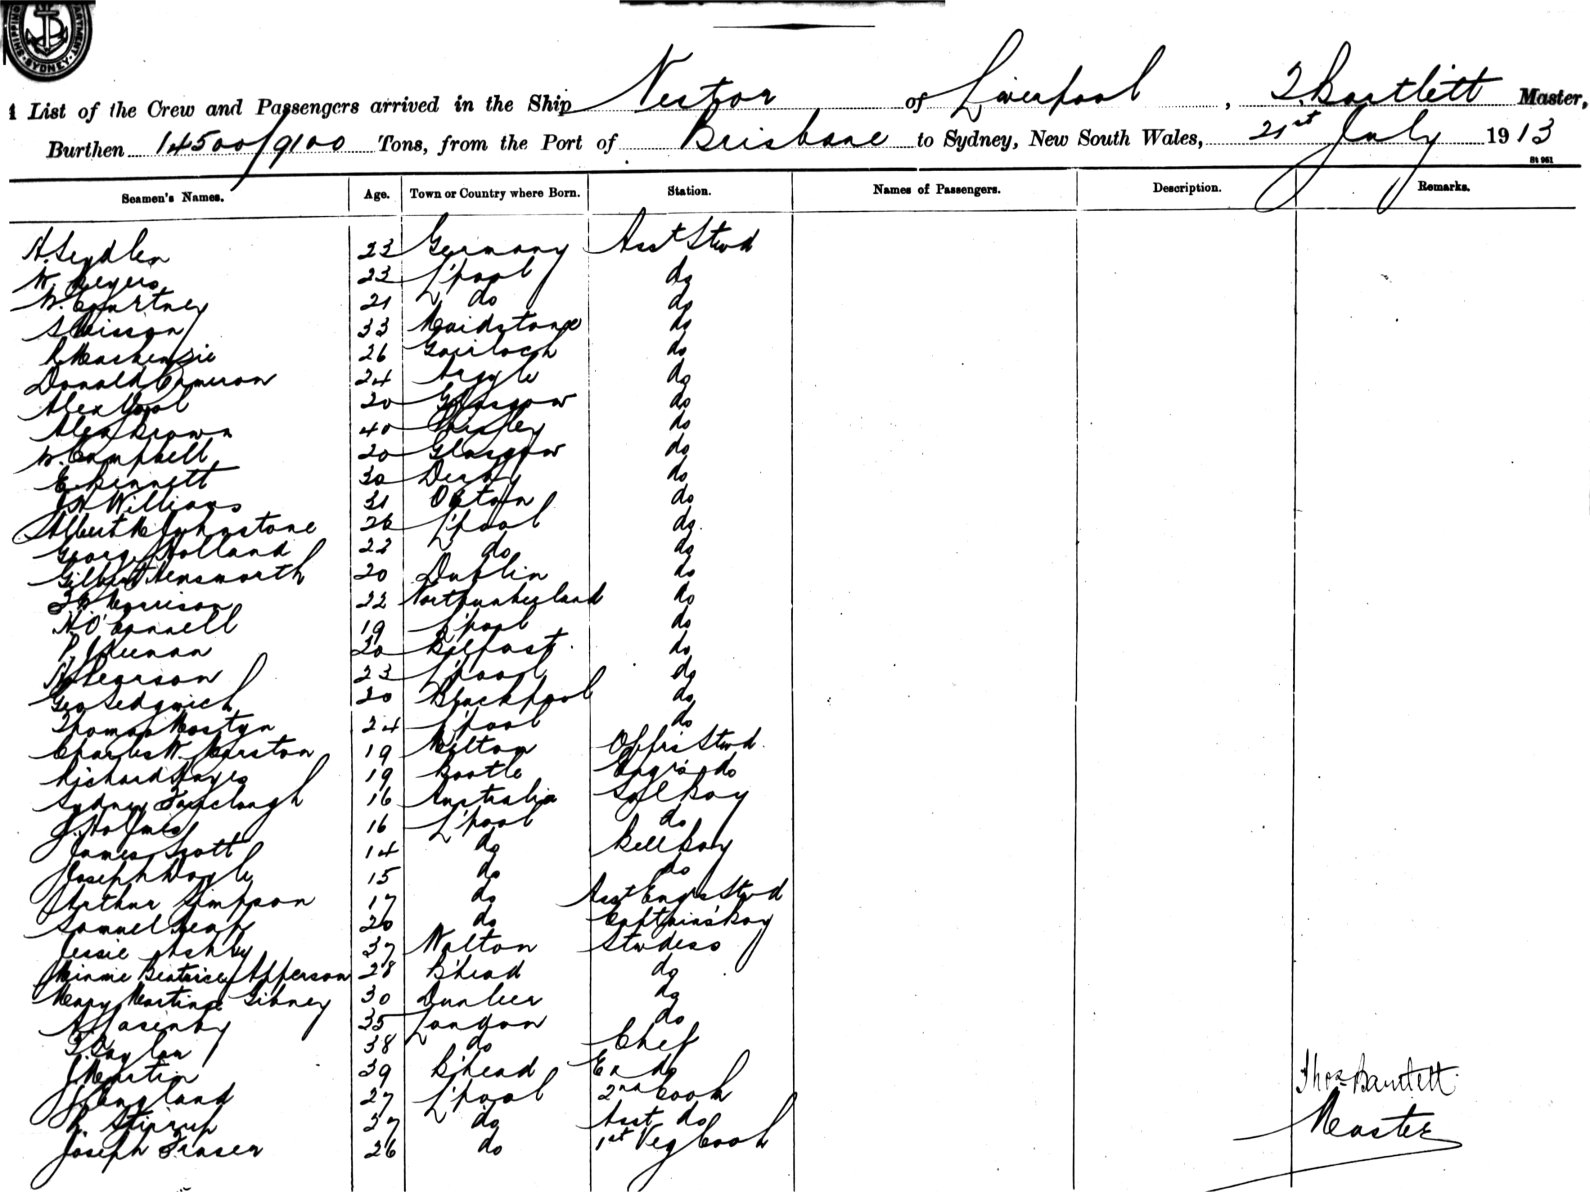 SHIPPING SYDNEY
List of the Crew and Passengers arrived in the Ship Nestor of Liverpool, T. Bartlett Master,
Burthen 14500/9100 Tons, from the Port of Brisbane to Sydney, New South Wales, 21st July 1913
St 951
Seamen's Names. Age. Town or Country where Born. Station. Names of Passengers. Description. Remarks.
A. Seydler 23 Germany Asst Stwd
W. Meyers 23 L'pool do
W. Courtney 21 do do
33 Maidstone do
Mackenzie 26 Gairloch do
Donald Cameron 24 Argyle do
Alex 20 Glasgow do
Alex Brown 40 Paisley do
W. Campbell 20 Glasgow do
E. Bennett 30 Derby do
J.H. Williams 31 Oxton do
Albert M. Johnstone 26 L'pool do
George Holland 22 do do
Gilbert Hensworth 20 Dublin do
Morrison 22 Northumberland do
H. O'Connell 19 L'pool do
P. 20 Belfast do
H. Pearson 23 L'pool do
Geo Sedgwick 20 Blackpool do
Thomas Mostyn 24 L'pool do
Charles W. Marston 19 Offrs Stwd
Richard Hayes 19 Bootle Engrs do
Sydney Fairclough 16 Australia Boy
J. Holmes 16 L'pool do
James Scott 14 do Bell Boy
Joseph Doyle 15 do do
Arthur Simpson 17 do Asst Engrs Stwd
Samuel 20 do Captains Boy
Jessie Ashby 37 Walton Stwdess
Minnie Beatrice Apperson 28 B'head do
Mary Martina Gibney 30 Dunleer do
A. Lasenby 35 London do
T. Taylor 38 do Chef
J. Martin 39 B'head Ex do
J. England 27 L'pool 2nd Cook
R. Stirrup 37 do Asst do
Joseph Fraser 26 do 1st Veg Cook
Thos Bartlett
Master